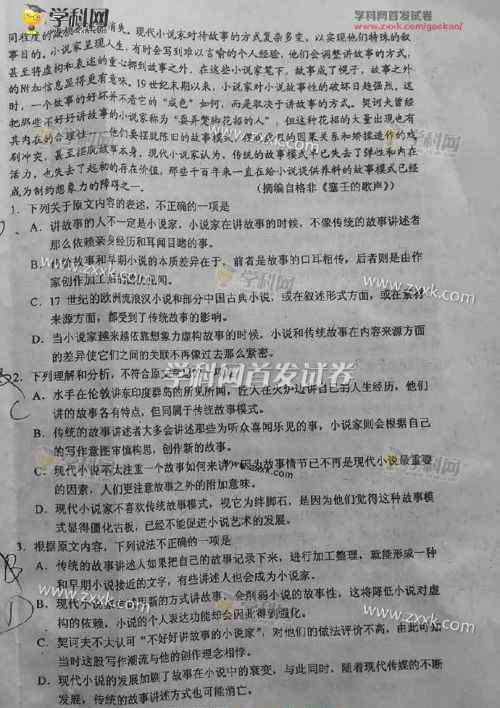 学科网
学科网首发试卷
www.zxxk.com/gaokao/
同程度的减损甚至消失。现代小说家对待故事的方式复杂多变，以实现他们特殊的叙
事目的。小说家呈现人生，有时会写到难以言喻的个人经验，他们会调整讲故事的方式，
甚至将虚构和表述的重心挪到故事之外。在这些小说家笔下，故事成了幌子，故事之外
的附加信息显得更有意味。19世纪末期以来，小说家对小说故事性的破坏日趋强烈。这
时，一个故事的好坏并不看它的“成色”如何，而是取决于讲故事的方式。契诃夫曾经
把那些不好好讲故事的小说家称为“耍弄蹩脚花招的人”，但这种花招的大量出现也有
其内在的合理性——他们要摆脱陈旧的故事模式、
刻冲突，甚至摆脱故事本身。现代小说家认为，传统的故事模式早已失去了弹性和内在
活力，也失去了起初的存在价值，那些千百年来一直在给小说提供养料的故事模式已经
成为制约想象力的障碍之一。
（摘编自格非《塞壬的歌声》）
1. 下列关于原文内容的表述，不正确的一项是
A. 讲故事的人不一定是小说家，小说家在讲故事的时候，不像传统的故事讲述者
那么依赖亲身经历和耳闻目睹的事。
B. 传统故事和早期小说的本质差异在于，前者是故事的口耳相传，后者则是由作
家创作加工后的见闻。
C. 17 世纪的欧洲流浪汉小说和部分中国古典小说，或在叙述形式方面，或在素材
来源方面，都受到了传统故事的影响。
D. 当小说家越来越依靠想象力虚构故事的时候，小说和传统故事在内容来源方面
的差异使它们之间的关联不再像过去那么紧密。
2. 下列理解和分析，不符合原文意思的一项是
A. 水手在伦敦讲东印度群岛的所见所闻，匠人在火炉边讲自己的人生经历，他们
讲的故事各有特点，但同属于传统故事模式。
B. 传统的故事讲述者大多会讲述那些为听众喜闻乐见的事，小说家则会根据自己
的写作意图审慎构思，创作新的故事。
C. 现代小说不太注重一个故事如何来讲，因为故事情节已不再是现代小说最重要
的因素，人们更注意故事之外的附加意味。
D. 现代小说家不喜欢传统故事模式，视它为绊脚石，是因为他们觉得这种故事模
式显得僵化古板，已经不能促进小说艺术的发展。
3. 根据原文内容，下列说法不正确的一项是
A. 传统的故事讲述人如果把自己的故事记录下来，进行加工整理，就能形成一种
和早期小说接近的文字，有些讲述人也会成为小说家。
B. 现代小说家
更新的方式讲故事，会削弱小说的故事性，这将降低小说对虚
构的依赖，小说的个人表达功能却会因此得到强化。
C. 契诃夫不太认可“不好好讲故事的小说家”，对他们的做法评价不高，由此可知
当时这股写作潮流与他的创作理念相悖。
D. 现代小说的发展加剧了故事在小说中的衰变，与此同时，随着现代传媒的不断
发展，传统的故事讲述方式也可能消亡。
C
B
D
学科网首发试卷
www.zxxk.com